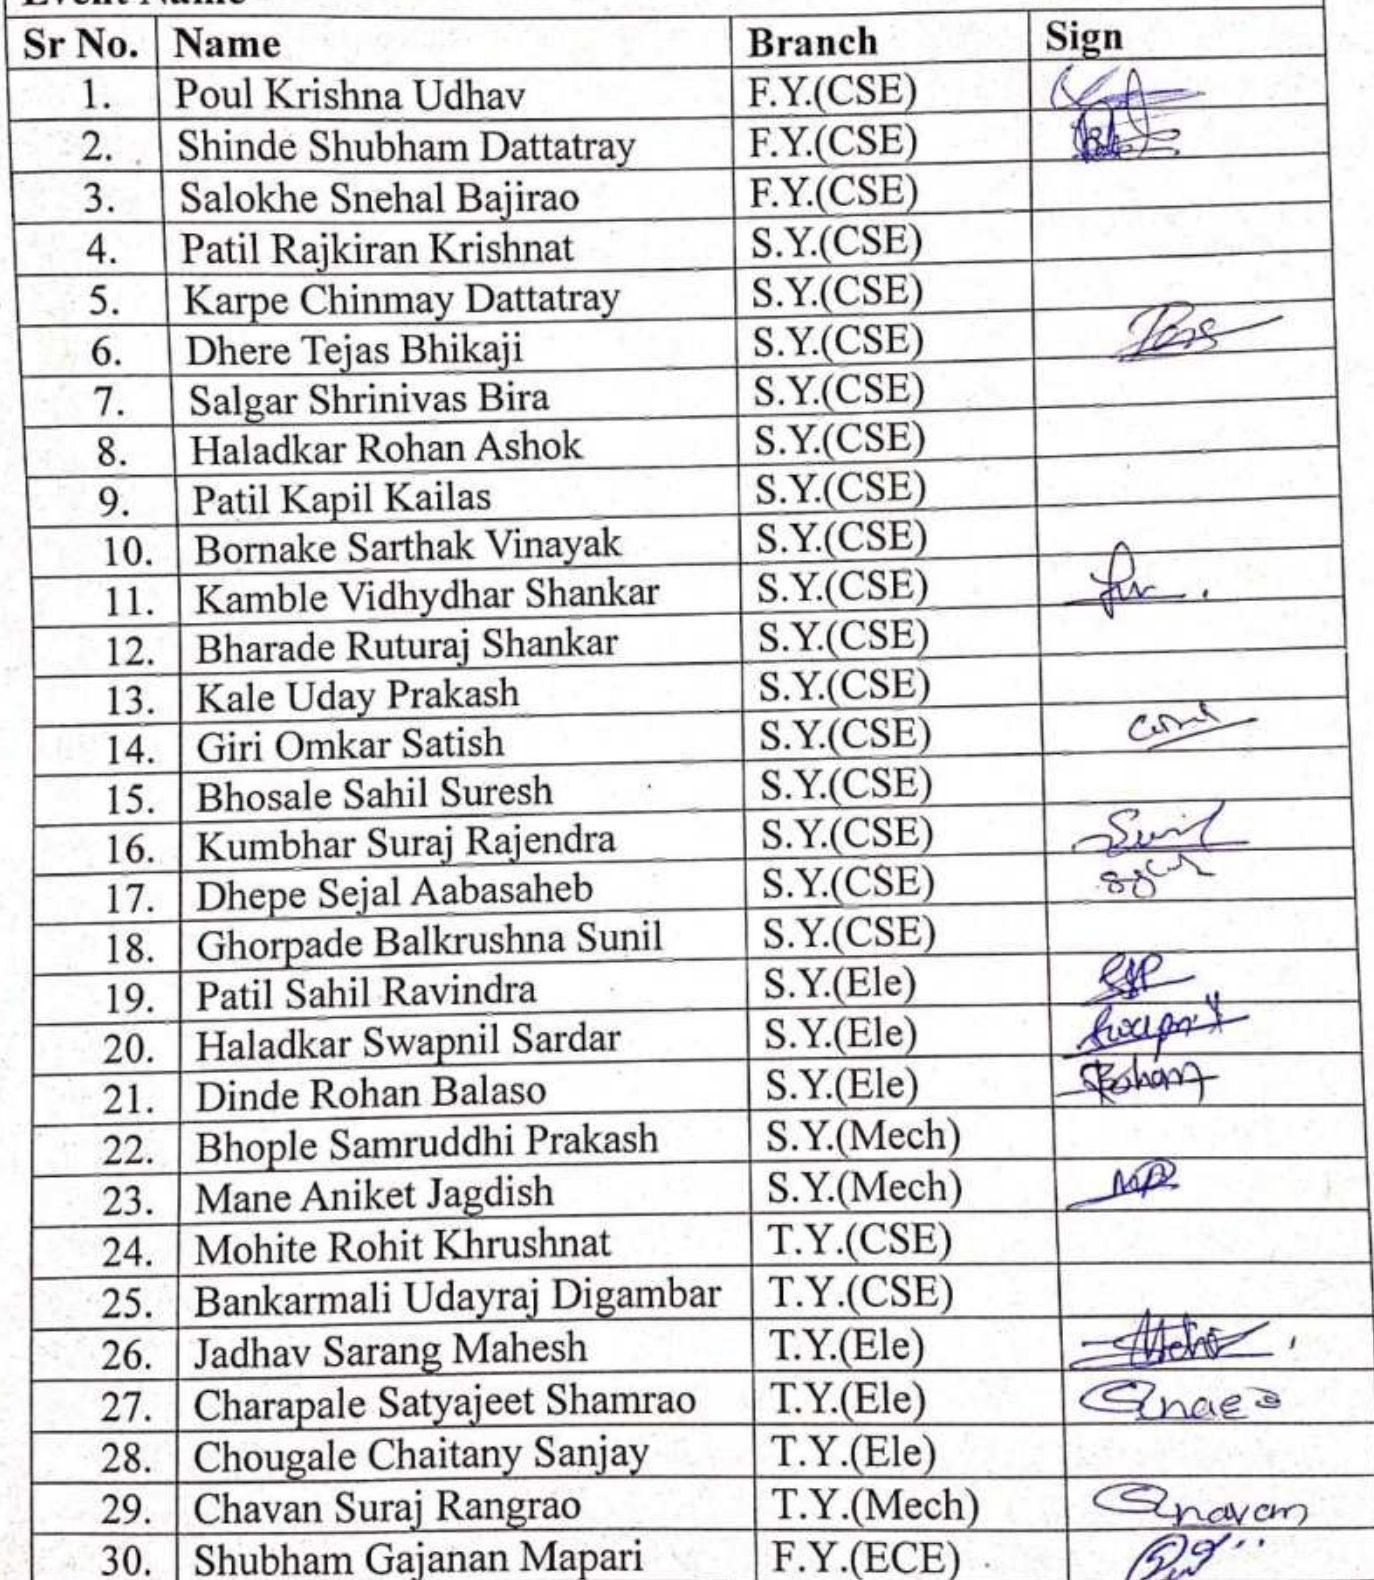 Event Name
Sr No. Name Branch Sign
1. Poul Krishna Udhav F.Y.(CSE)
2. Shinde Shubham Dattatray F.Y.(CSE)
3. Salokhe Snehal Bajirao F.Y.(CSE)
4. Patil Rajkiran Krishnat S.Y.(CSE)
5. Karpe Chinmay Dattatray S.Y.(CSE)
6. Dhere Tejas Bhikaji S.Y.(CSE)
7. Salgar Shrinivas Bira S.Y.(CSE)
8. Haladkar Rohan Ashok S.Y.(CSE)
9. Patil Kapil Kailas S.Y.(CSE)
10. Bornake Sarthak Vinayak S.Y.(CSE)
11. Kamble Vidhydhar Shankar S.Y.(CSE)
12. Bharade Ruturaj Shankar S.Y.(CSE)
13. Kale Uday Prakash S.Y.(CSE)
14. Giri Omkar Satish S.Y.(CSE)
15. Bhosale Sahil Suresh S.Y.(CSE)
16. Kumbhar Suraj Rajendra S.Y.(CSE)
17. Dhepe Sejal Aabasaheb S.Y.(CSE)
18. Ghorpade Balkrushna Sunil S.Y.(CSE)
19. Patil Sahil Ravindra S.Y.(Ele)
20. Haladkar Swapnil Sardar S.Y.(Ele)
21. Dinde Rohan Balaso S.Y.(Ele) Rohan
22. Bhople Samruddhi Prakash S.Y.(Mech)
23. Mane Aniket Jagdish S.Y.(Mech)
24. Mohite Rohit Khrushnat T.Y.(CSE)
25. Bankarmali Udayraj Digambar T.Y.(CSE)
26. Jadhav Sarang Mahesh T.Y.(Ele)
27. Charapale Satyajeet Shamrao T.Y.(Ele)
28. Chougale Chaitany Sanjay T.Y.(Ele)
29. Chavan Suraj Rangrao T.Y.(Mech)
30. Shubham Gajanan Mapari F.Y.(ECE)